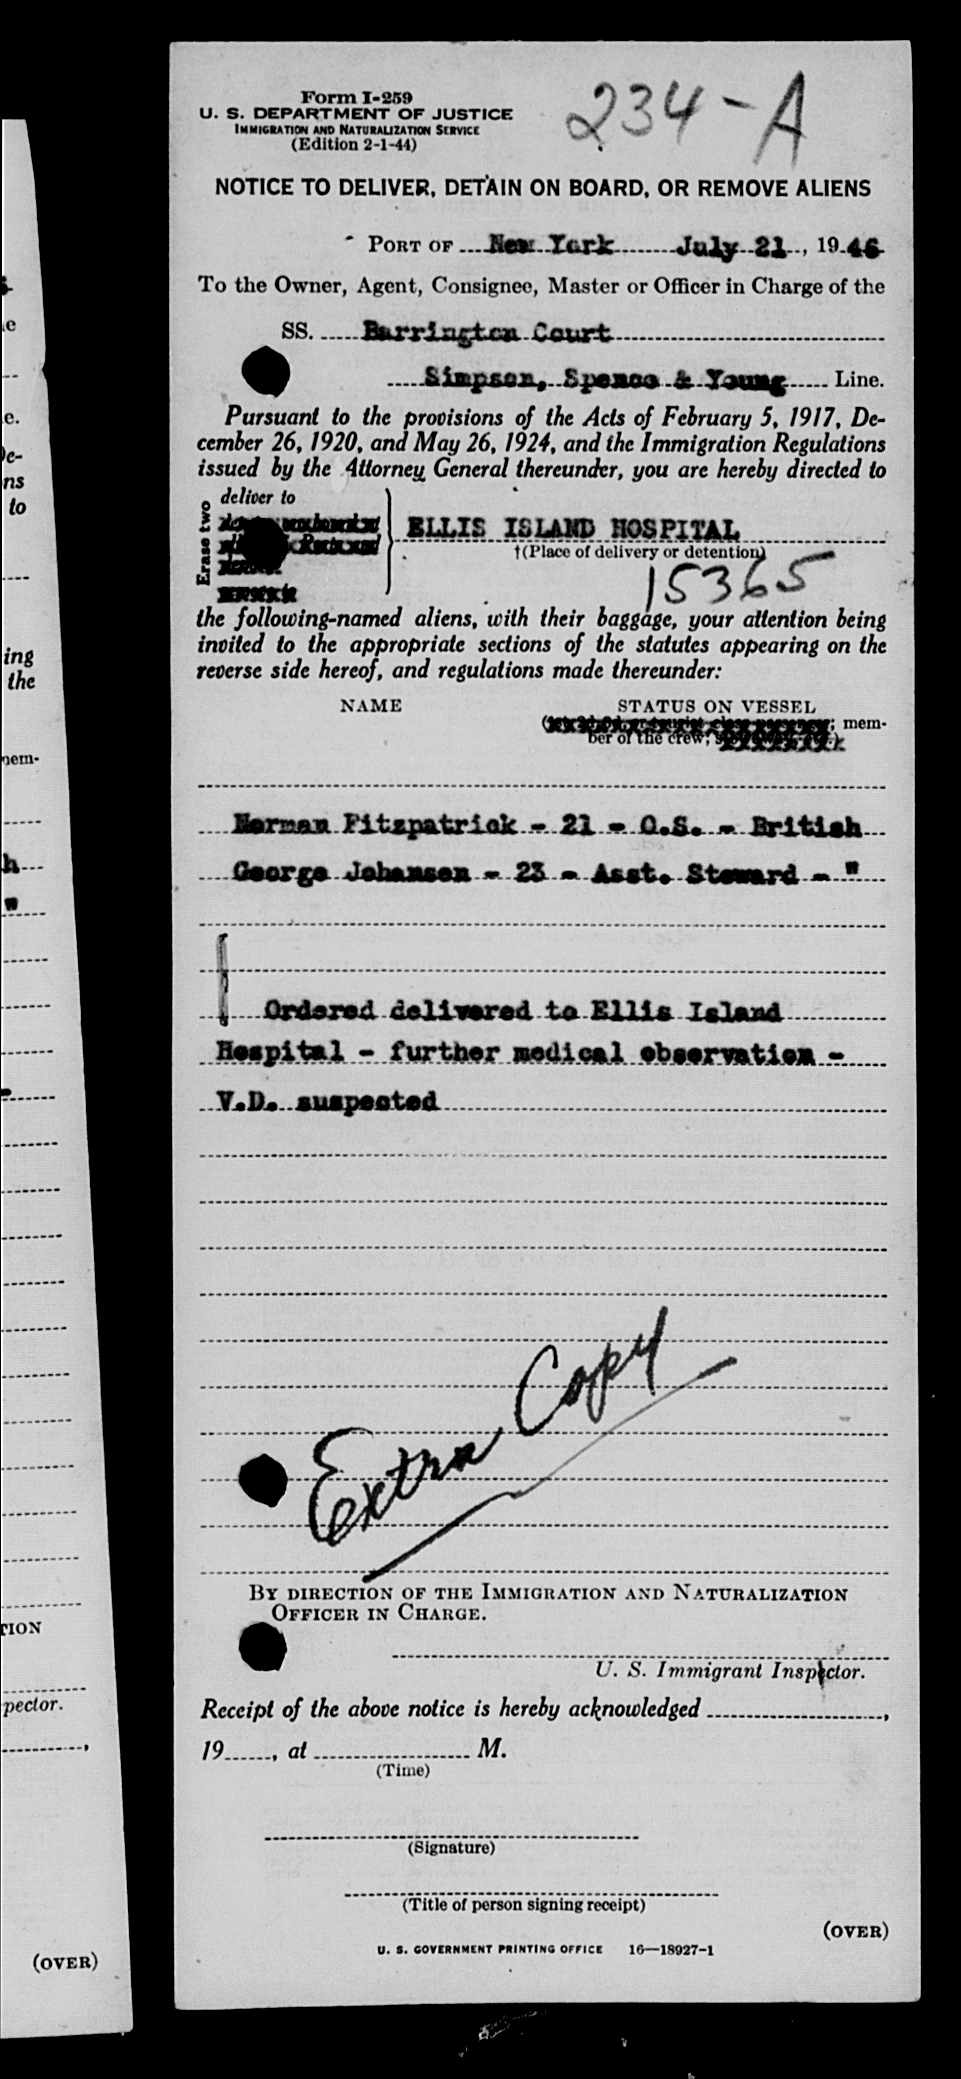 Form I-259
U. S. DEPARTMENT OF JUSTICE
IMMIGRATION AND NATURALIZATION SERVICE
(Edition 2-1-44)
234-A
NOTICE TO DELIVER, DETAIN ON BOARD, OR REMOVE ALIENS
PORT OF New York July 21, 1946
To the Owner, Agent, Consignee, Master or Officer in Charge of the
SS. Barrington Court
Simpson, Spence & Young Line.
Pursuant to the provisions of the Acts of February 5, 1917, De-
cember 26, 1920, and May 26, 1924, and the Immigration Regulations
issued by the Attorney General thereunder, you are hereby directed to
Erase two
deliver to
ELLIS ISLAND HOSPITAL
†(Place of delivery or detention)
15365
the following-named aliens, with their baggage, your attention being
invited to the appropriate sections of the statutes appearing on the
reverse side hereof, and regulations made thereunder:
NAME STATUS ON VESSEL
; mem-
ber of the crew;
Herman Fitzpatrick - 21 - O.S. - British
George Johansen - 23 - Asst. Steward - "
Ordered delivered to Ellis Island
Hospital - further medical observation -
V.D. suspected
Extra Copy
BY DIRECTION OF THE IMMIGRATION AND NATURALIZATION
OFFICER IN CHARGE.
U. S. Immigrant Inspector.
Receipt of the above notice is hereby acknowledged ,
19 , at M.
(Time)
(Signature)
(Title of person signing receipt)
(OVER)
U. S. GOVERNMENT PRINTING OFFICE 16—18927-1
e
e.
De-
ns
to
ing
the
mem-
h
"
TION
pector.
,
(OVER)